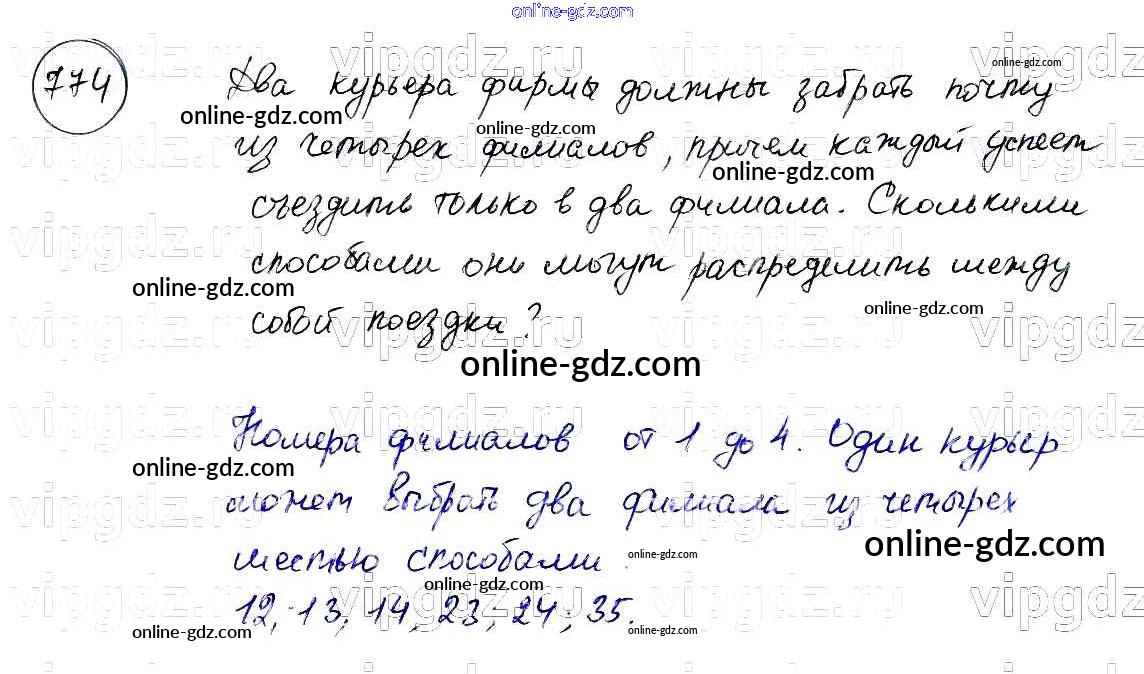 online-gdz.com
774 Два курьера фирмы должны забрать почту
из четырех филиалов, причем каждый успеет
съездить только в два филиала. Сколькими
способами они могут распределить между
собой поездки?
Номера филиалов от 1 до 4. Один курьер
может выбрать два филиала из четырех
шестью способами.
12, 13, 14, 23, 24, 35.
online-gdz.com
vipgdz.ru